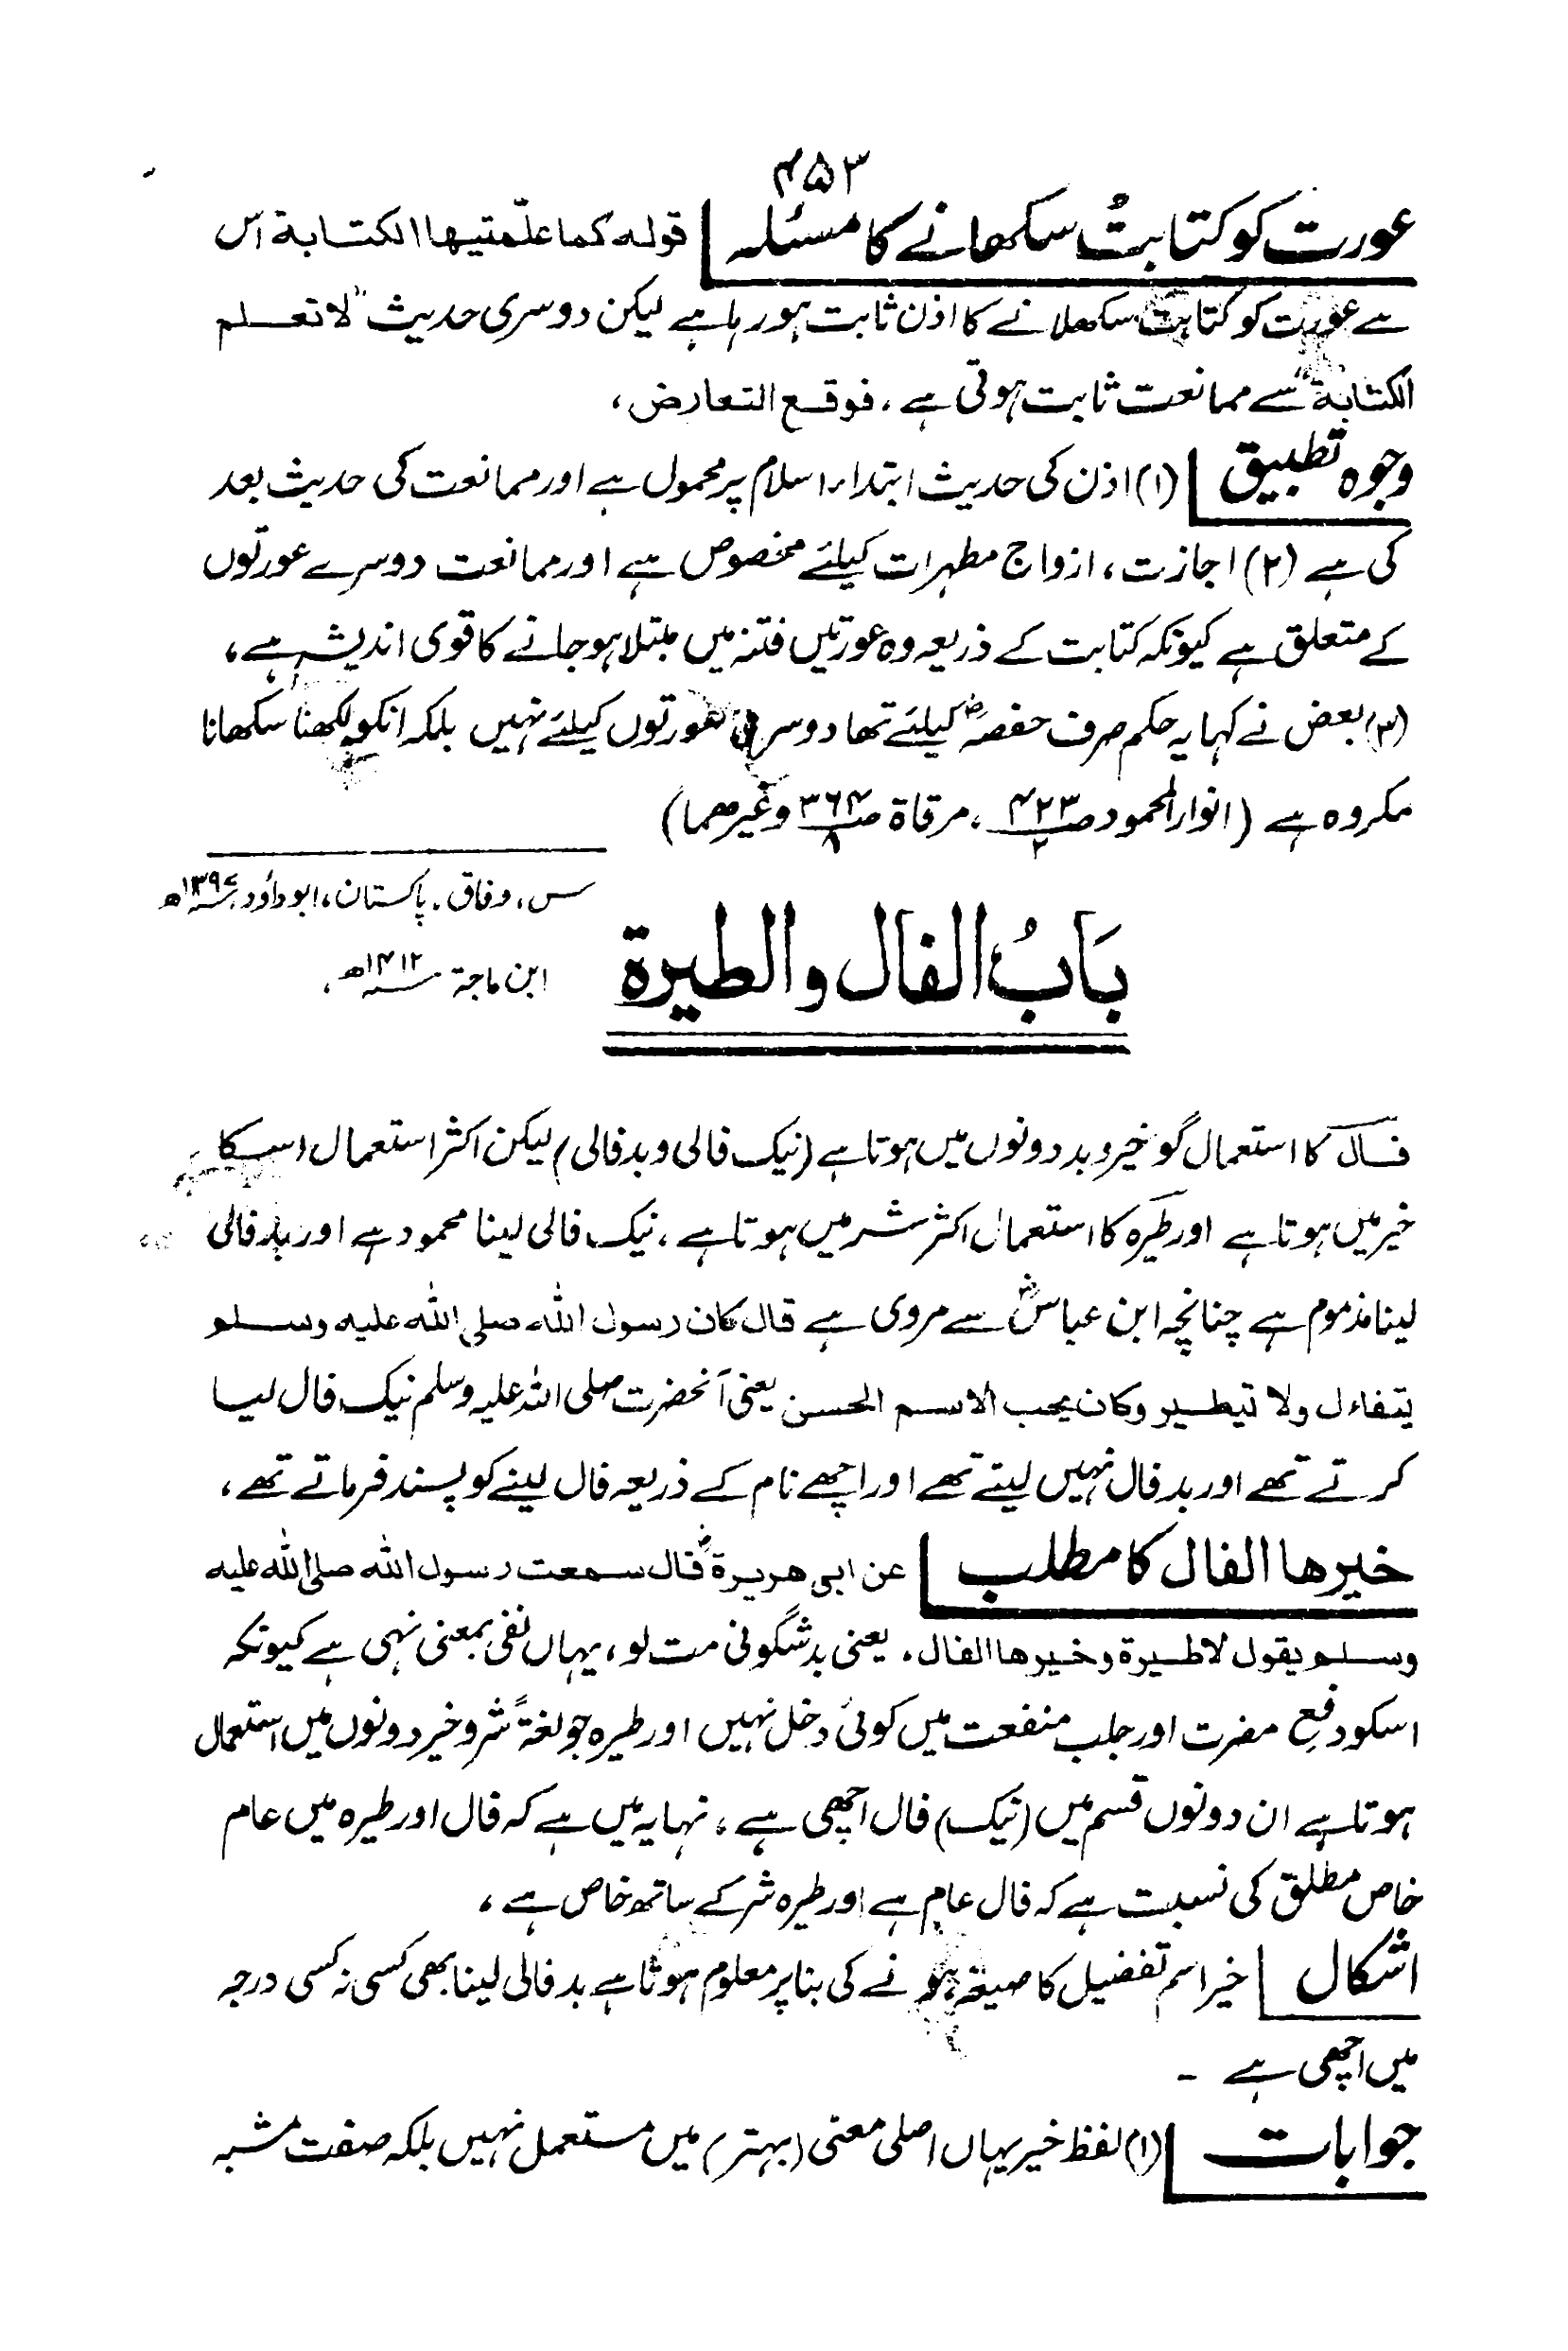 ۴۵۳
عورت کو کتابتُ سکھانے کا مسئلہ قولہ کما علّمتیہا الکتابۃ اس
سے عورت کو کتابت سکھلانے کا اذن ثابت ہو رہا ہے لیکن دوسری حدیث "لا تعلم
الکتابۃ" سے ممانعت ثابت ہوتی ہے، فوقع التعارض،
وجوہ تطبیق (۱) اذن کی حدیث ابتداء اسلام پر محمول ہے اور ممانعت کی حدیث بعد
کی ہے (۲) اجازت، ازواج مطہرات کیلئے مخصوص ہے اور ممانعت دوسرے عورتوں
کے متعلق ہے کیونکہ کتابت کے ذریعہ وہ عورتیں فتنہ میں مبتلا ہو جانے کا قوی اندیشہ ہے،
(۳) بعض نے کہا یہ حکم صرف حفصہؓ کیلئے تھا دوسری عورتوں کیلئے نہیں بلکہ انکو لکھنا سکھانا
مکروہ ہے (انوار المحمود ص۴۲۳/۲، مرقاۃ ص۳۶۴/۸ وغیرہما)
س، وفاق، پاکستان، ابو داؤد ۱۳۹۷ھ
ابن ماجۃ ۱۴۱۲ھ،
بَابُ الفال والطیرۃ
فال کا استعمال گو خیر و بد دونوں میں ہوتا ہے (نیک فالی و بدفالی) لیکن اکثر استعمال اسکا
خیر میں ہوتا ہے اور طیرہ کا استعمال اکثر شر میں ہوتا ہے، نیک فالی لینا محمود ہے اور بدفالی
لینا مذموم ہے چنانچہ ابن عباسؓ سے مروی ہے قال کان رسول اللہ صلی اللہ علیہ وسلم
یتفاءل ولا تیطیر وکان یحب الاسم الحسن یعنی آنحضرت صلی اللہ علیہ وسلم نیک فال لیا
کرتے تھے اور بد فال نہیں لیتے تھے اور اچھے نام کے ذریعہ فال لینے کو پسند فرماتے تھے،
خیرھا الفال کا مطلب عن ابی ھریرۃؓ قال سمعت رسول اللہ صلی اللہ علیہ
وسلم یقول لا طیرۃ وخیرھا الفال، یعنی بدشگونی مت لو، یہاں نفی بمعنی نہی ہے کیونکہ
اسکو دفع مضرت اور جلب منفعت میں کوئی دخل نہیں اور طیرہ جو لغۃً شر و خیر دونوں میں استعمال
ہوتا ہے ان دونوں قسم میں (نیک) فال اچھی ہے، نہایہ میں ہے کہ فال اور طیرہ میں عام
خاص مطلق کی نسبت ہے کہ فال عام ہے اور طیرہ شر کے ساتھ خاص ہے،
اشکال خیر اسم تفضیل کا صیغہ ہونے کی بنا پر معلوم ہوتا ہے بد فالی لینا بھی کسی نہ کسی درجہ
میں اچھی ہے -
جوابات (۱) لفظ خیر یہاں اصلی معنی (بہتر) میں مستعمل نہیں بلکہ صفت مشبہ